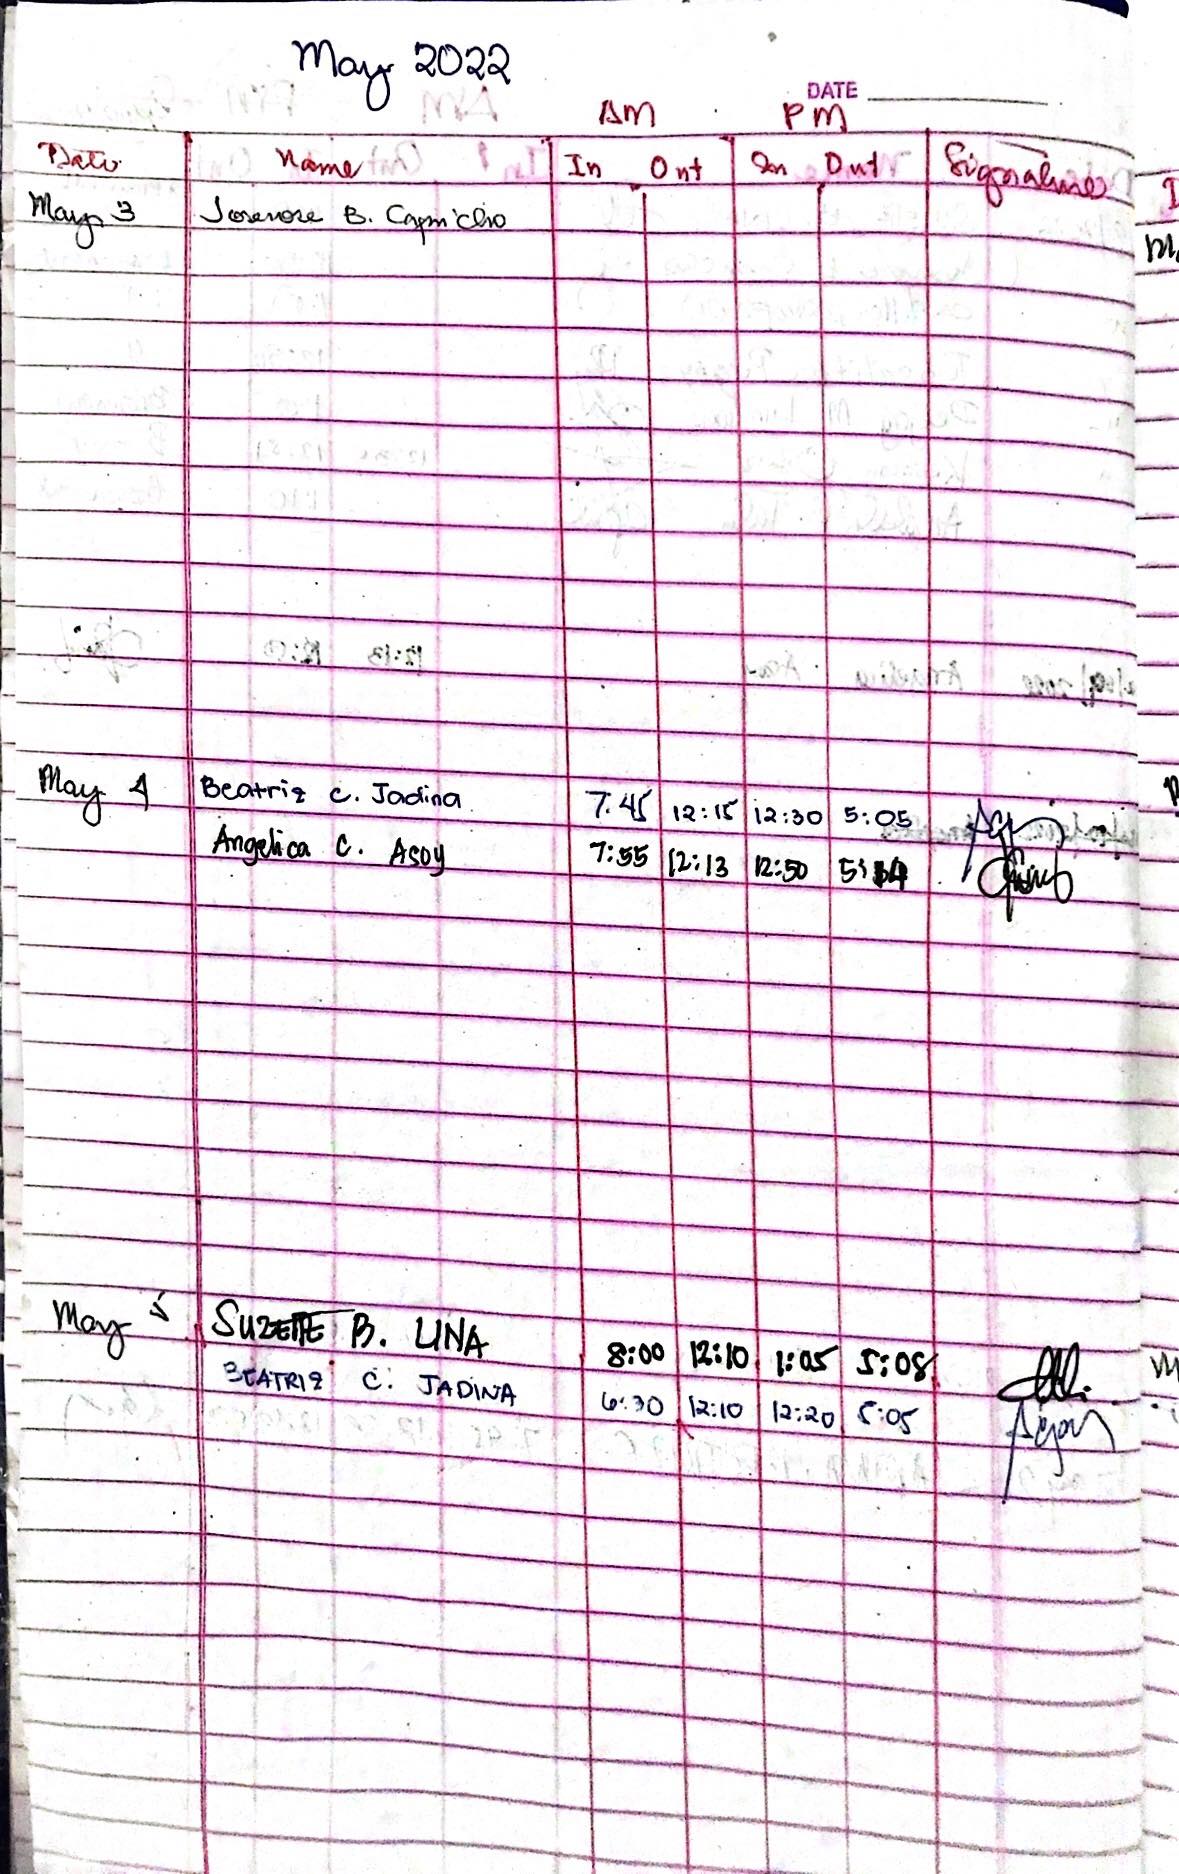 May 2022
DATE
AM PM
Date Name In Out In Out Signature
May 3 B.
May 4 Beatriz C. Jadina 7:45 12:15 12:30 5:05
Angelica C. Asoy 7:55 12:13 12:50
May 5 SUZETTE B. LINA 8:00 12:10 1:05 5:08
BEATRIZ C. JADINA 6:30 12:10 12:20 5:05